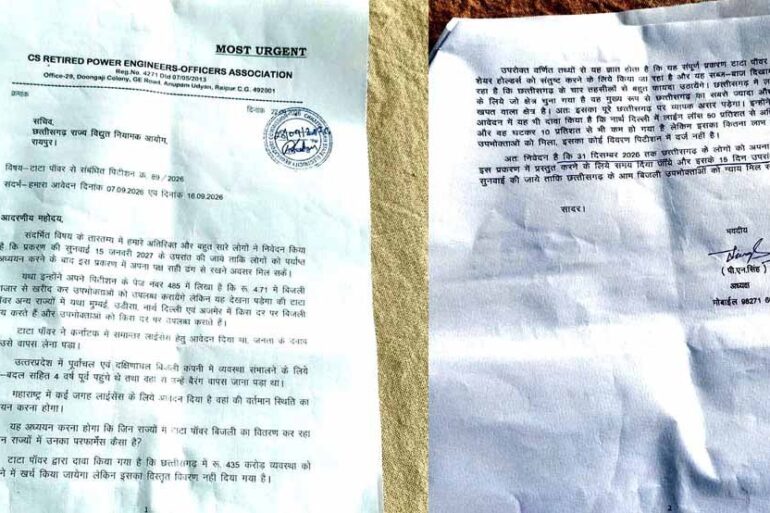 MOST URGENT
CS RETIRED POWER ENGINEERS-OFFICERS ASSOCIATION
Reg.No. 4271 Dtd 07/05/2013
Office-29, Doongaji Colony, GE Road, Anupam Udyan, Raipur C.G. 492001
क्रमांक
दिनांक
सचिव,
छत्तीसगढ़ राज्य विद्युत नियामक आयोग,
रायपुर।
विषय-टाटा पॉवर से संबंधित पिटीशन क्र. 89/2026
संदर्भ-हमारा आवेदन दिनांक 07.09.2026 एवं दिनांक 16.09.2026
आदरणीय महोदय,
संदर्भित विषय के तारतम्य में हमारे अतिरिक्त और बहुत सारे लोगों ने निवेदन किया
है कि प्रकरण की सुनवाई 15 जनवरी 2027 के उपरांत की जाये ताकि लोगों को पर्याप्त
अध्ययन करने के बाद इस प्रकरण में अपना पक्ष सही ढंग से रखने अवसर मिल सकें।
यथा इन्होंने अपने पिटीशन के पेज नंबर 485 में लिखा है कि रू. 4.71 में बिजली
बाजार से खरीद कर उपभोक्ताओं को उपलब्ध करायेंगे लेकिन यह देखना पड़ेगा की टाटा
पॉवर अन्य राज्यों में यथा मुम्बई, उडीसा, नार्थ दिल्ली एवं अजमेर में किस दर पर बिजली
क्रय करते हैं और उपभोक्ताओं को किस दर पर उपलब्ध कराते है।
टाटा पॉवर ने कर्नाटक में समान्तर लाईसेंस हेतु आवेदन दिया था, जनता के दबाव
उसे वापस लेना पड़ा।
उत्तरप्रदेश में पूर्वांचल एवं दक्षिणांचल बिजली कंपनी में व्यवस्था संभालने के लिये
-बदल सहित 4 वर्ष पूर्व पहुंचे थे तथा वहां से उन्हें बैरंग वापस जाना पड़ा था।
महाराष्ट्र में कई जगह लाईसेंस के लिए आवेदन दिया है वहां की वर्तमान स्थिति का
अध्ययन करना होगा।
यह अध्ययन करना होगा कि जिन राज्यों में टाटा पॉवर बिजली का वितरण कर रहा
उन राज्यों में उनका परफार्मेंस कैसा है?
टाटा पॉवर द्वारा दावा किया गया है कि छत्तीसगढ़ में रू. 435 करोड़ व्यवस्था को
में खर्च किया जायेगा लेकिन इसका विस्तृत विवरण नही दिया गया है।
1
उपरोक्त वर्णित तथ्यों से यह ज्ञात होता है कि यह संपूर्ण प्रकरण टाटा पॉवर
शेयर होल्डर्स को संतुष्ट करने के लिए किया जा रहा है और यह सब्ज-बाज दिखाया
रहा है कि छत्तीसगढ़ के चार तहसीलों से बहुत फायदा उठायेंगे। छत्तीसगढ़ में
के लिये जो क्षेत्र चुना गया है वह मुख्य रूप से छत्तीसगढ़ का सबसे ज्यादा और
खपत वाला क्षेत्र है। अतः इसका पूरे छत्तीसगढ़ पर व्यापक असर पड़ेगा। इन्होंने
आवेदन में यह भी दावा किया है कि नार्थ दिल्ली में लाईन लॉस 50 प्रतिशत से
और वह घटकर 10 प्रतिशत से भी कम हो गया है लेकिन इसका कितना लाभ
उपभोक्ताओं को मिला, इसका कोई विवरण पिटीशन में दर्ज नहीं है।
अतः निवेदन है कि 31 दिसम्बर 2026 तक छत्तीसगढ़ के लोगों को अपना
इस प्रकरण में प्रस्तुत करने के लिये समय दिया जाये और इसके 15 दिन उपरांत
सुनवाई की जाये ताकि छत्तीसगढ़ के आम बिजली उपभोक्ताओं को न्याय मिल
सादर।
भवदीय
(पी.एन.सिंह)
अध्यक्ष
मोबाईल 98271
2